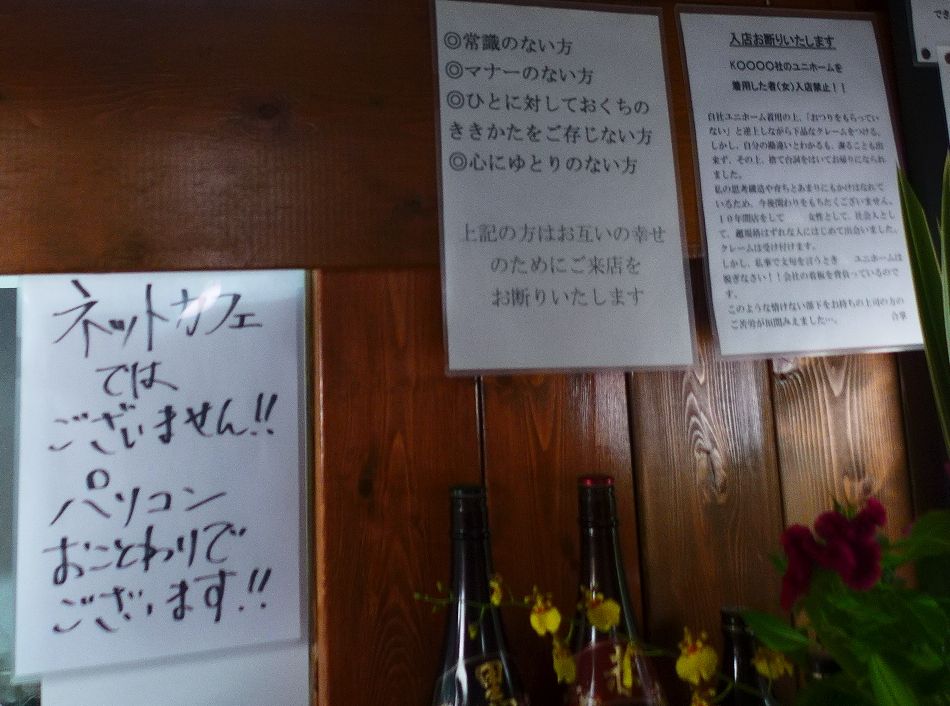 ネットカフェ
では
ございません!!
パソコン
おことわりで
ございます!!
◎常識のない方
◎マナーのない方
◎ひとに対しておくちの
ききかたをご存じない方
◎心にゆとりのない方
上記の方はお互いの幸せ
のためにご来店を
お断りいたします
入店お断りいたします
K〇〇〇〇社のユニホームを
着用した者(女)入店禁止!!
自社ユニホーム着用の上、「おつりをもらってい
ない」と逆上しながら下品なクレームをつける。
しかし、自分の勘違いとわかるも、謝ることも出
来ず、その上、捨て台詞をはいてお帰りになられ
ました。
私の思考構造や育ちとあまりにもかけはなれて
いるため、今後関わりをもちたくございません。
10年間店をして 女性として、社会人とし
て、超規格はずれな人にはじめて出会いました。
クレームは受け付けます。
しかし、私事で文句を言うとき ユニホームは
脱ぎなさい!!会社の看板を背負っているので
す。
このような情けない部下をお持ちの上司の方の
ご苦労が垣間みえました…。
黒